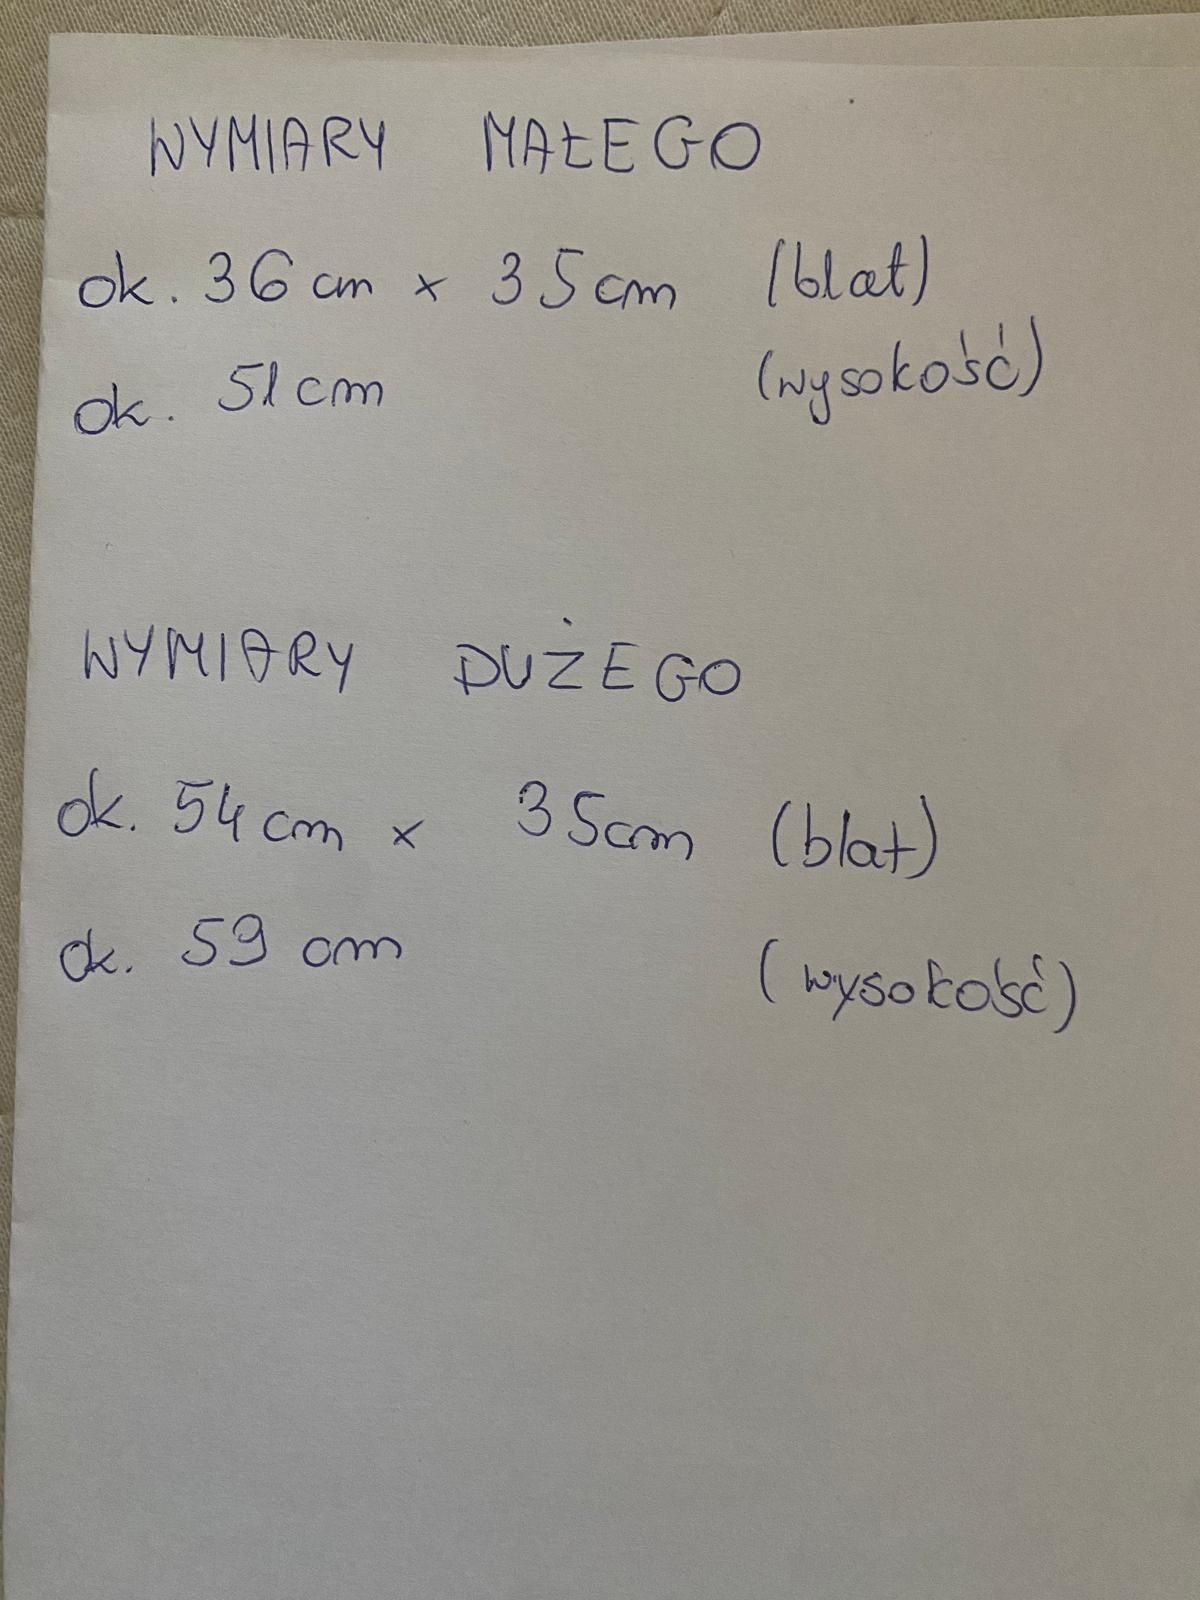 WYMIARY MAŁEGO
ok. 36 cm x 35 cm (blat)
ok. 51 cm (wysokość)
WYMIARY DUŻEGO
ok. 54 cm x 35 cm (blat)
ok. 59 cm (wysokość)